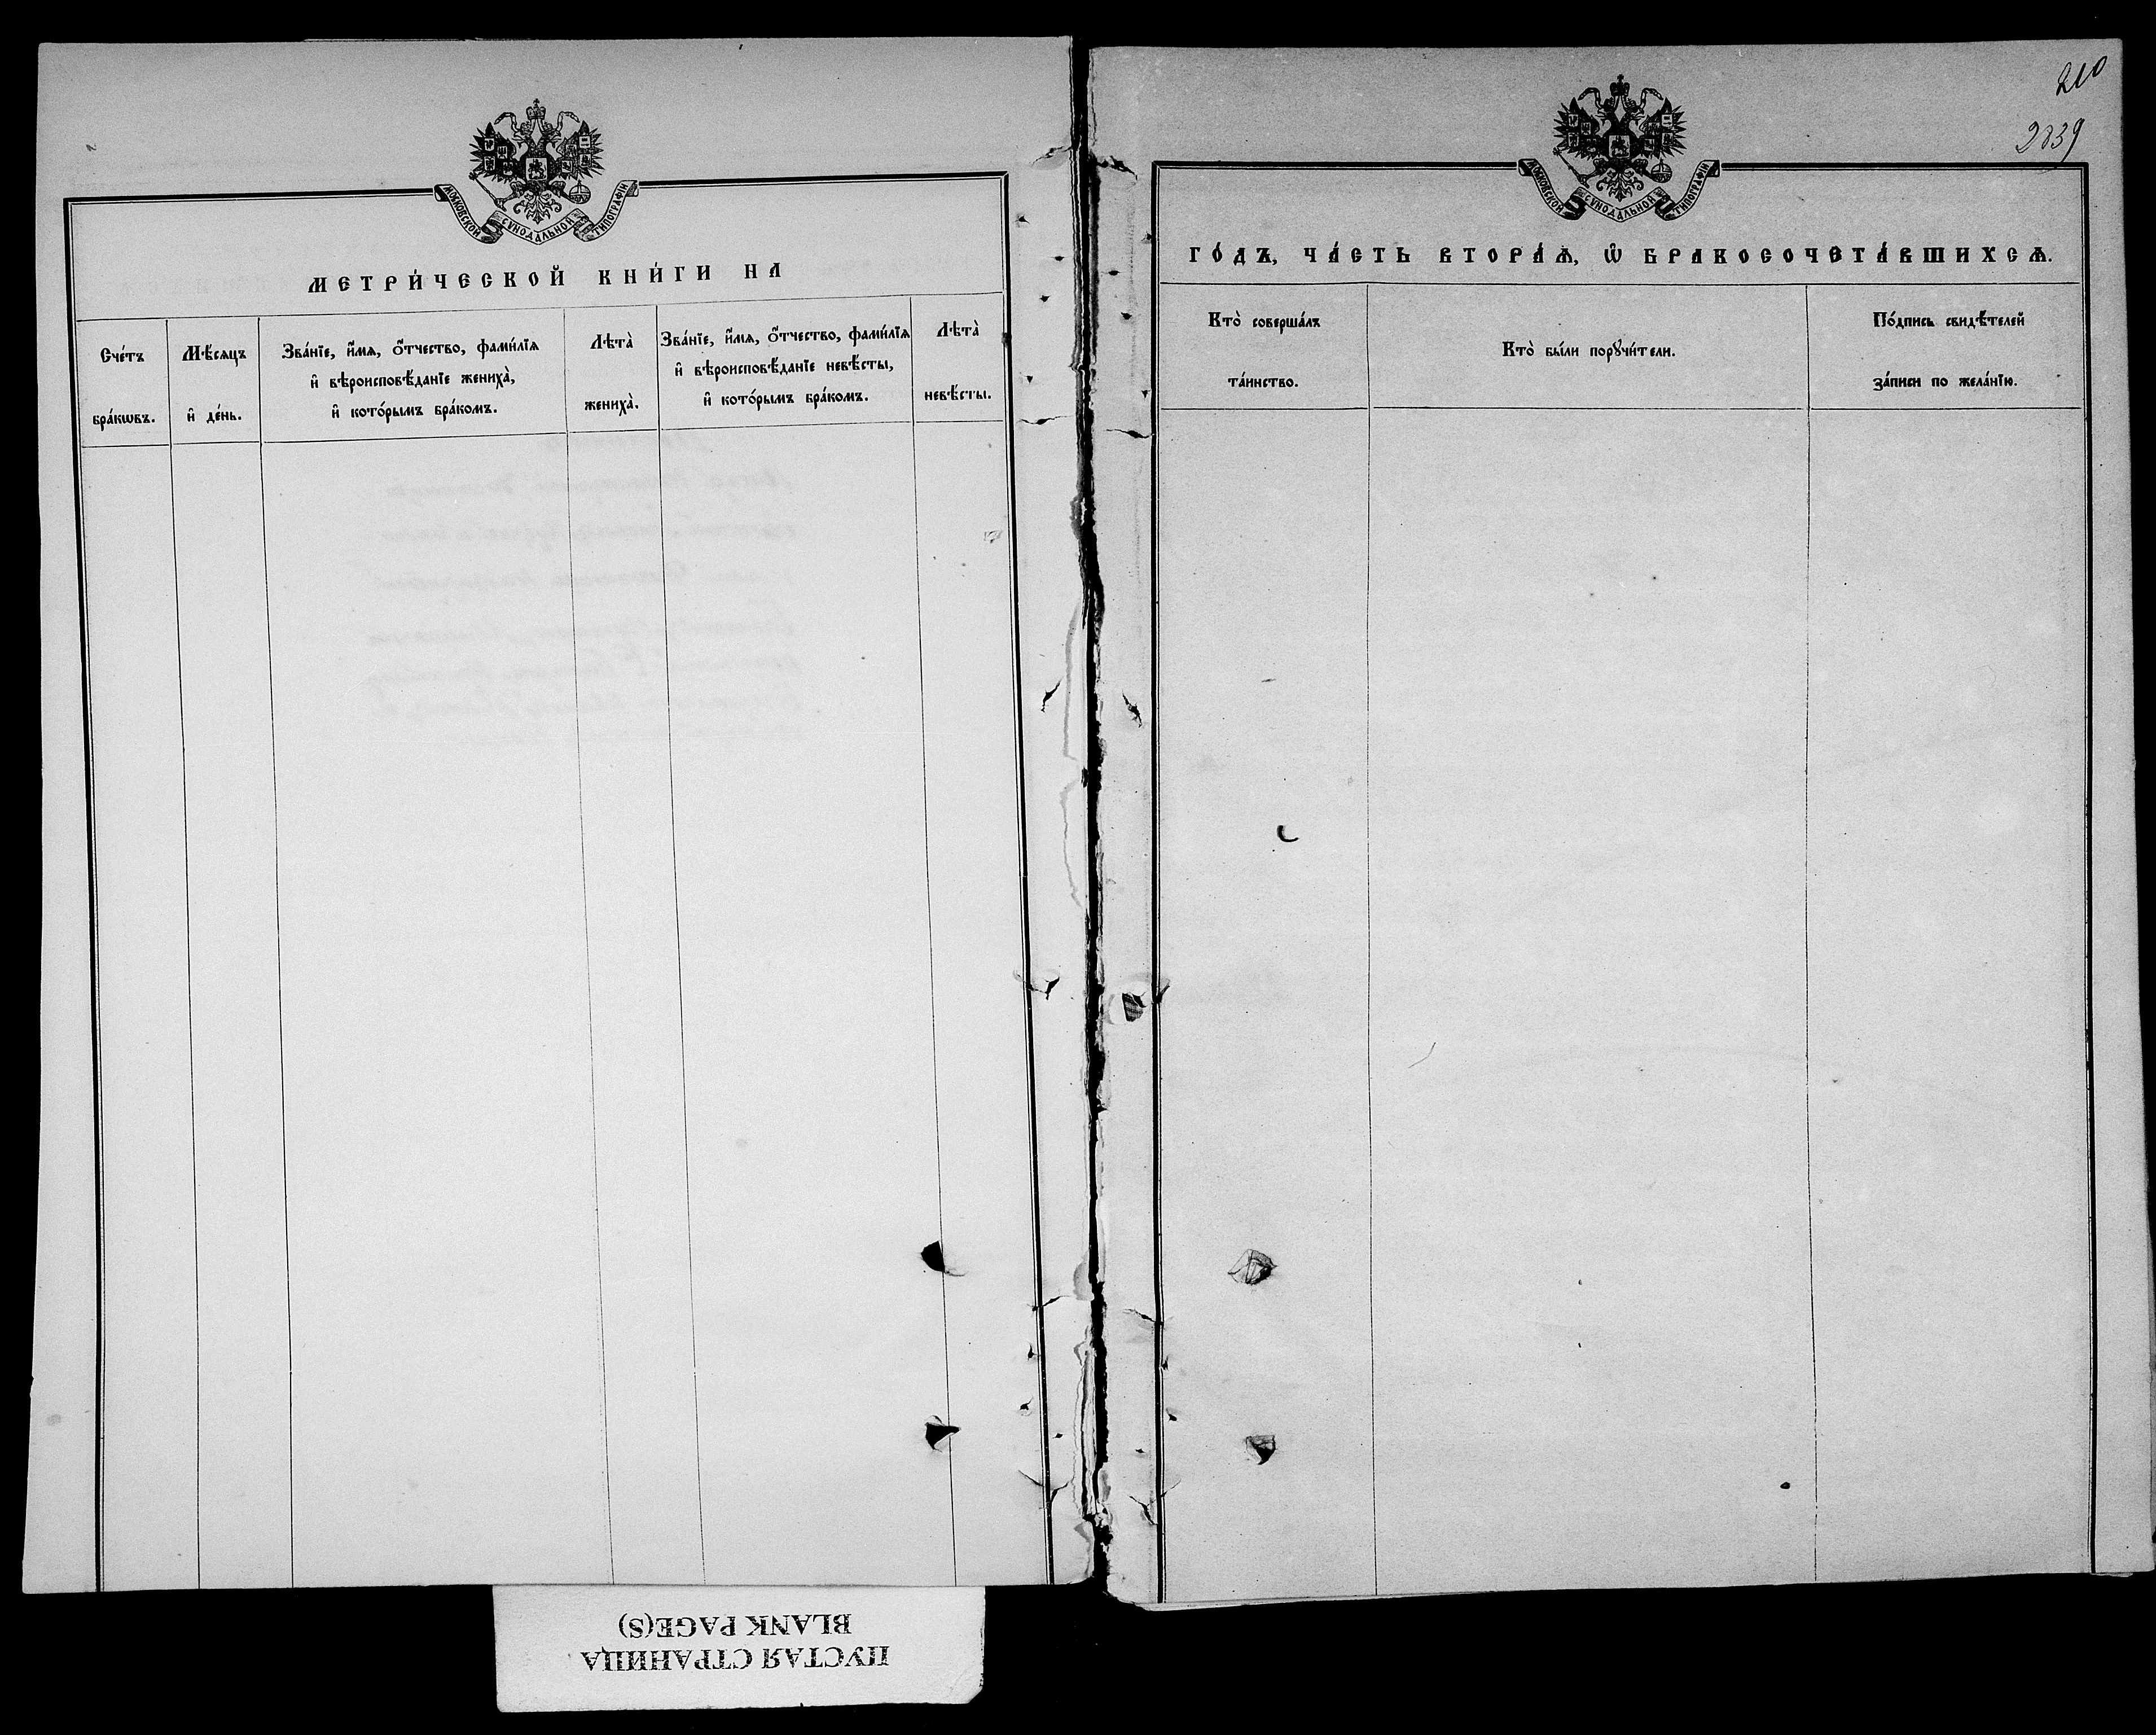 210
2839
МОСКОВСКОЙ СѴНОДАЛЬНОЙ ТИПОГРАФІИ
МЕТРИ́ЧЕСКОЙ КНИ́ГИ НА
Сче́тъ
бра́кѡвъ.
Мѣ́сяцъ
и҆ де́нь.
Зва́нїе, и҆́мѧ, ѻ҆́тчество, фами́лїѧ
и҆ вѣроисповѣ́данїе жениха̀,
и҆ кото́рымъ бра́комъ.
Лѣта̀
жениха̀.
Зва́нїе, и҆́мѧ, ѻ҆́тчество, фами́лїѧ
и҆ вѣроисповѣ́данїе невѣ́сты,
и҆ кото́рымъ бра́комъ.
Лѣта̀
невѣ́сты.
МОСКОВСКОЙ СѴНОДАЛЬНОЙ ТИПОГРАФІИ
ГО́ДЪ, ЧА́СТЬ ВТОРА́Ѧ, Ѡ҆ БРАКОСОЧЕТА́ВШИХСѦ.
Кто̀ соверша́лъ
та́инство.
Кто̀ бы́ли порꙋчи́тели.
По́дпись свидѣ́телей
за́писи по жела́нїю.
ПУСТАЯ СТРАНИЦА
BLANK PAGE(S)